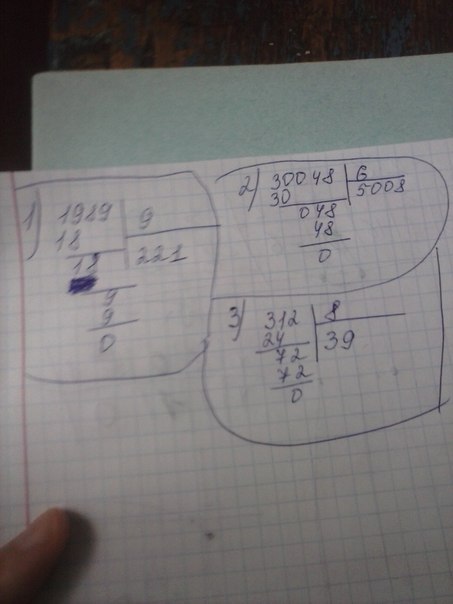 1) 1989 9
18 221
18
9
9
0
2) 30048 6
30 5008
048
48
0
3) 312 8
24 39
72
72
0